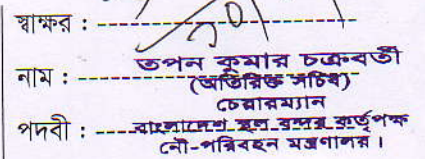 স্বাক্ষর :
নাম : তপন কুমার চক্রবর্তী
(অতিরিক্ত সচিব)
চেয়ারম্যান
পদবী : বাংলাদেশ স্থল বন্দর কর্তৃপক্ষ
নৌ-পরিবহন মন্ত্রণালয় ।